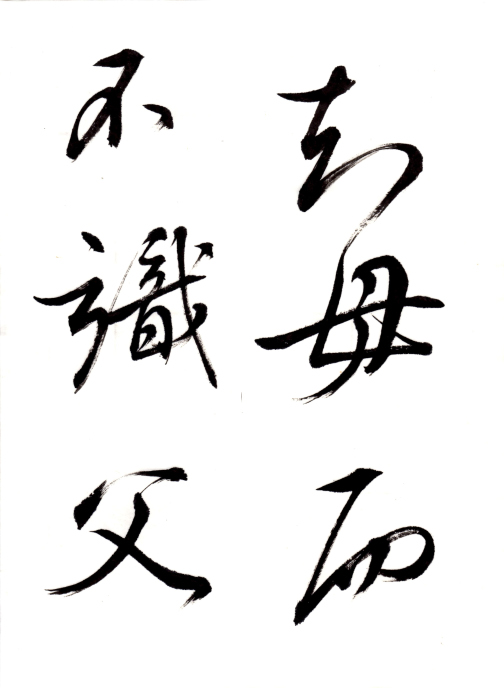 知母而
不識父